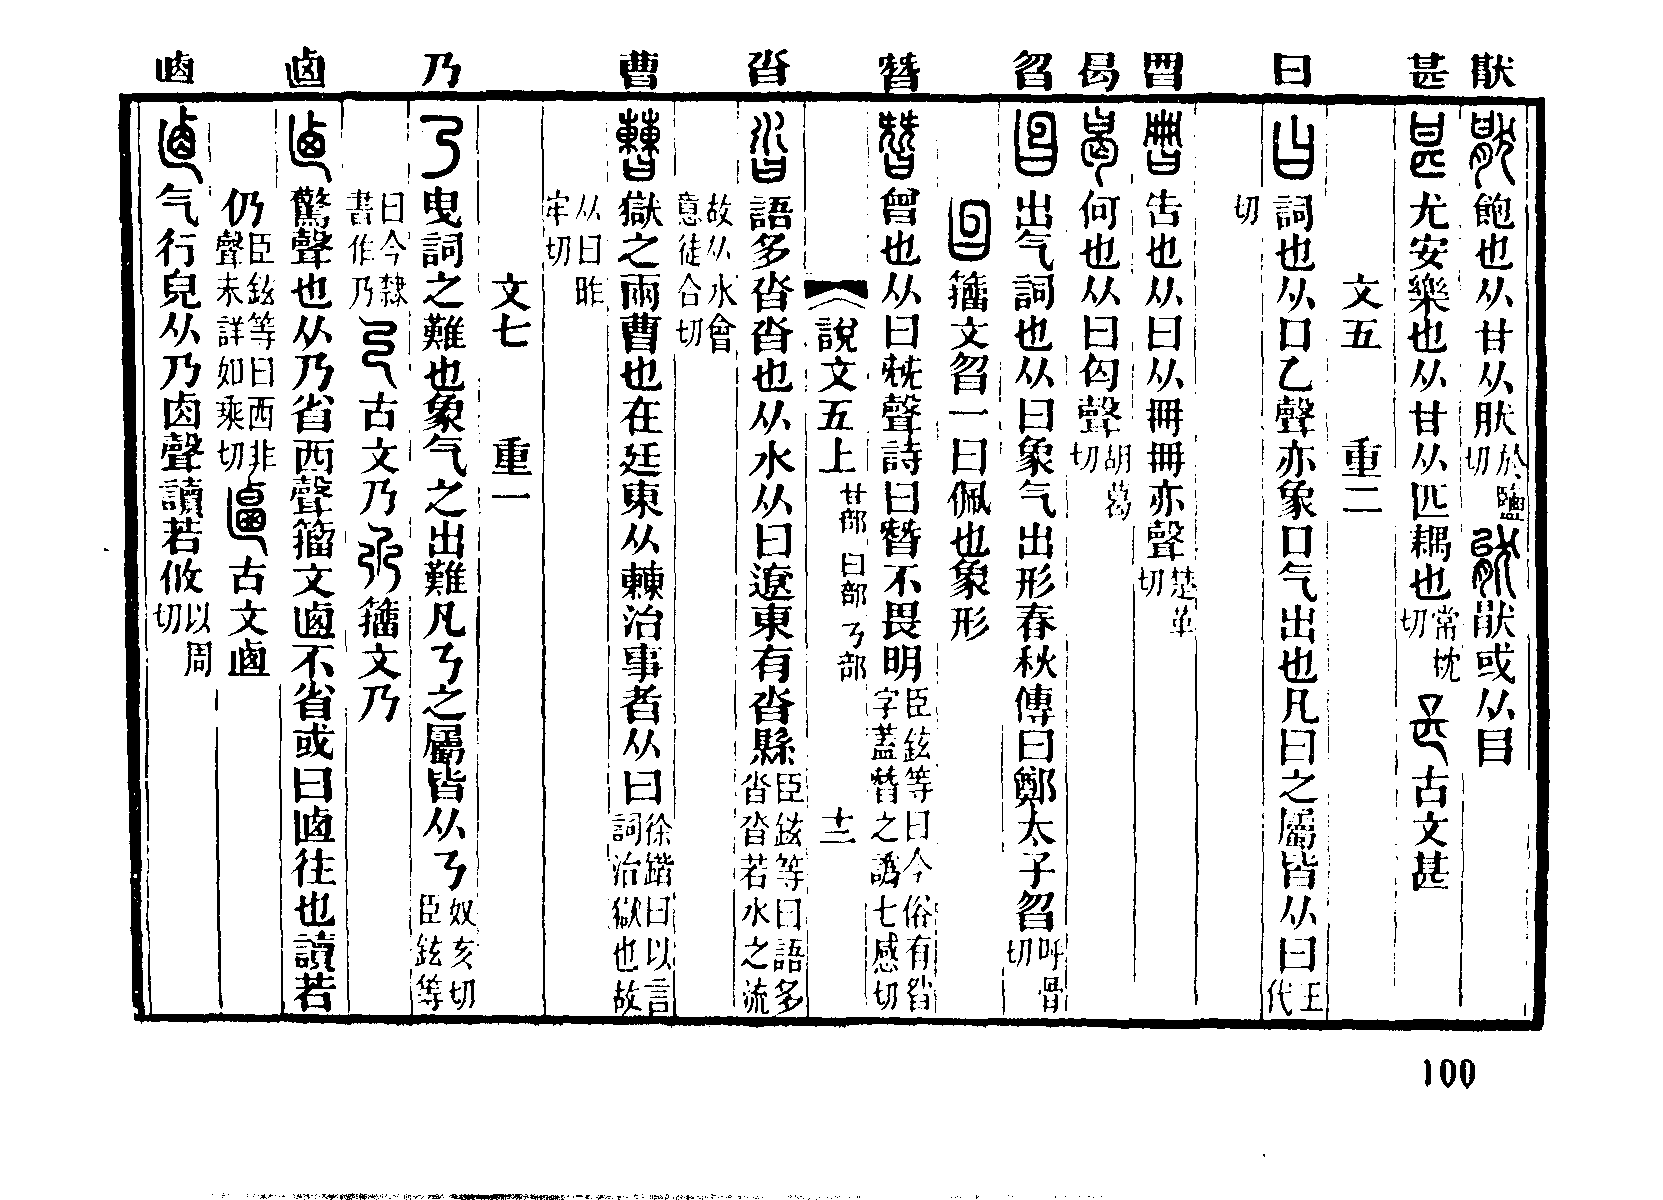 猒 甚 曰 𠕋 曷 曶 朁 沓 曹 乃 𠧟 𠧪
飽也从甘从肰於鹽切 猒或从㠯
尤安樂也从甘从匹耦也常枕切 古文甚
文五 重二
詞也从口乙聲亦象口气出也凡曰之屬皆从曰王代
切
告也从曰从冊冊亦聲楚革切
何也从曰匃聲胡葛切
出气詞也从曰象气出形春秋傳曰鄭太子曶呼骨切
籒文曶一曰佩也象形
曾也从曰兓聲詩曰朁不畏明臣鉉等曰今俗有昝字蓋朁之譌七感切
說文五上 甘部 曰部 乃部 十二
語多沓沓也从水从曰遼東有沓縣臣鉉等曰語多沓沓若水之流
故从水會意徒合切
獄之兩曹也在廷東从㯥治事者从曰徐鍇曰以言詞治獄也故
从曰昨牢切
文七 重一
曳詞之難也象气之出難凡乃之屬皆从乃奴亥切臣鉉等
曰今隸書作乃 古文乃 籒文乃
驚聲也从乃省西聲籒文𠧟不省或曰𠧟往也讀若
仍臣鉉等曰西非聲未詳如乘切 古文𠧟
气行皃从乃卤聲讀若攸以周切
100